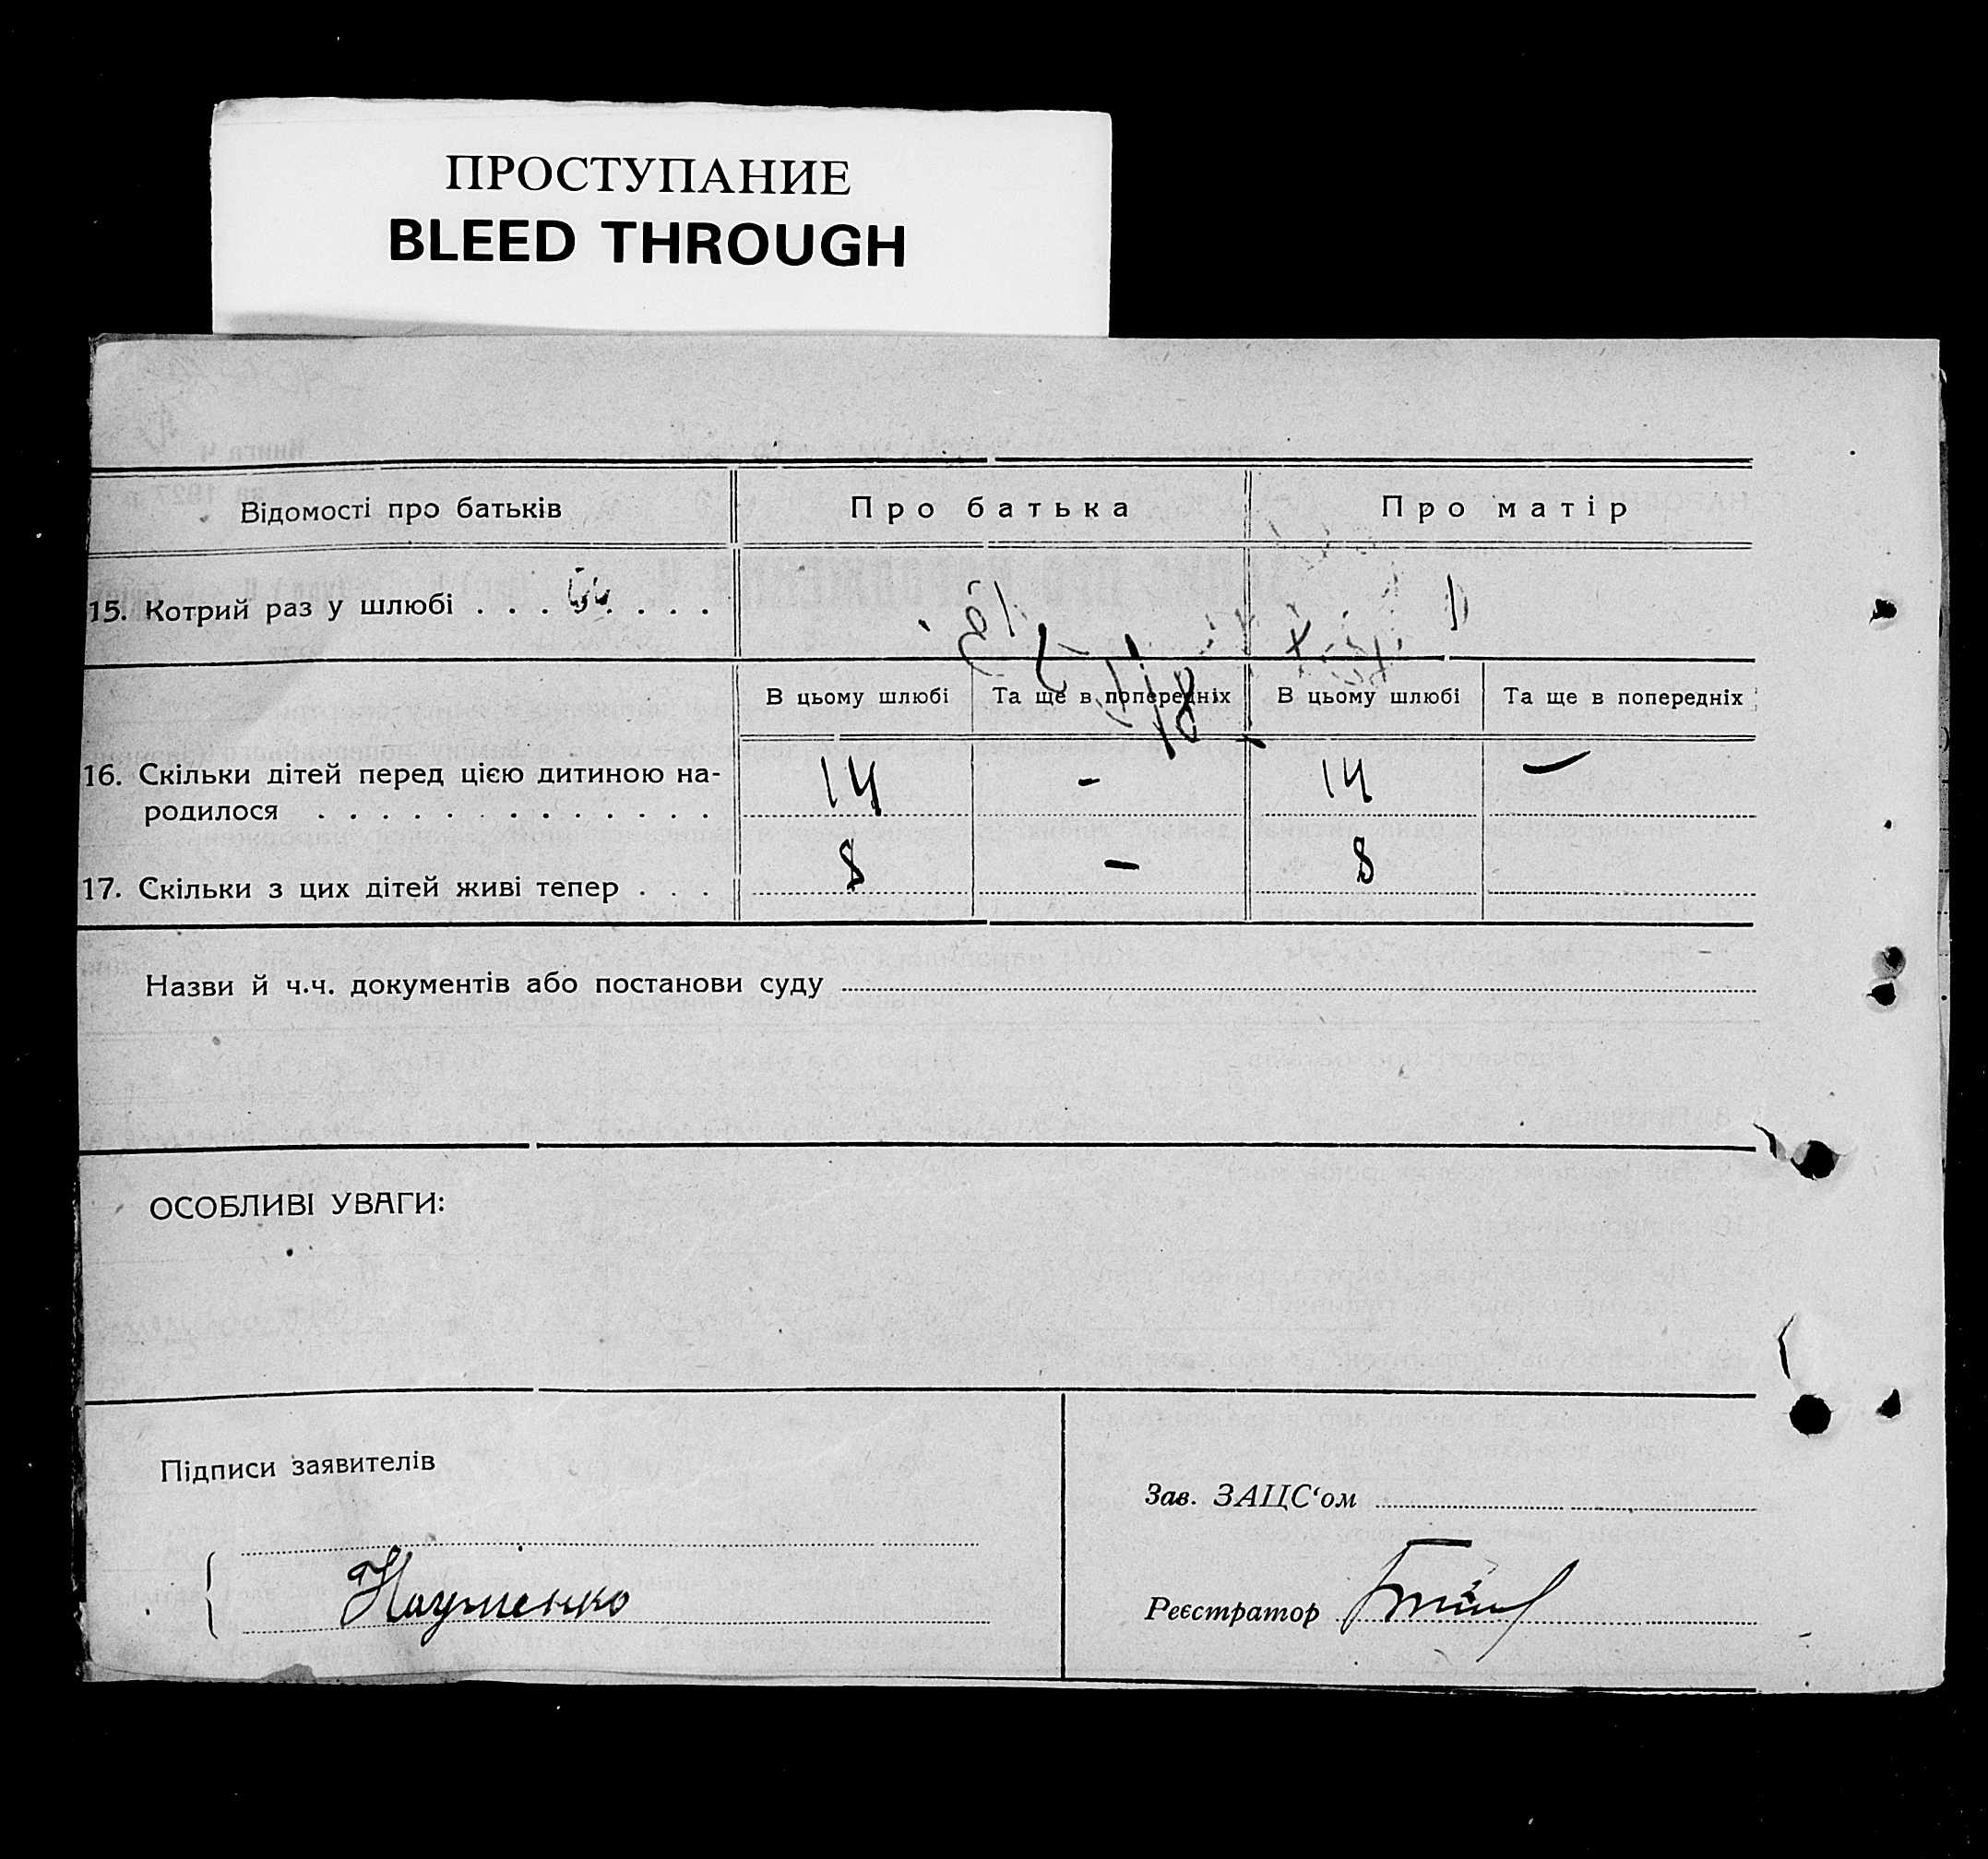 ПРОСТУПАНИЕ
BLEED THROUGH
Відомості про батьків
Про батька
Про матір
15. Котрий раз у шлюбі . . . . . . . .
В цьому шлюбі
Та ще в попередніх
В цьому шлюбі
Та ще в попередніх
16. Скільки дітей перед цією дитиною на-
родилося . . . . . . . . . . . . .
14 - 14 —
17. Скільки з цих дітей живі тепер . . . 8 — 8
Назви й ч.ч. документів або постанови суду
ОСОБЛИВІ УВАГИ:
Підписи заявителів
Науменко
Зав. ЗАЦС‘ом
Реєстратор